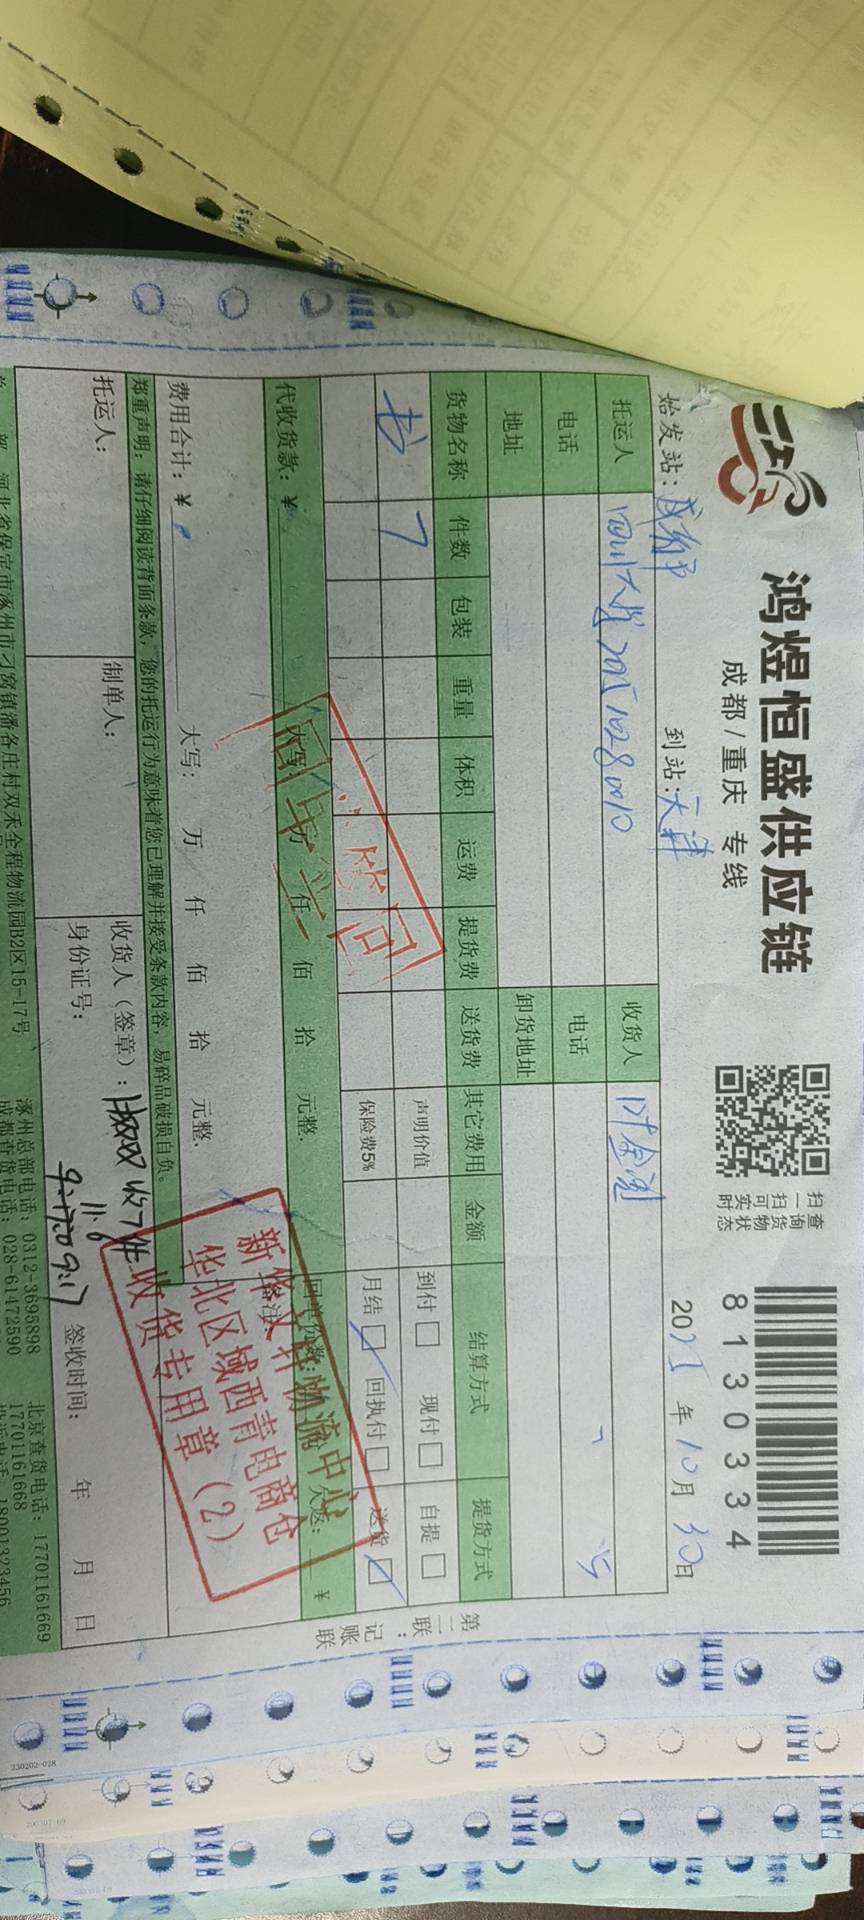 鸿煜恒盛供应链
成都/重庆 专线
扫一扫可实时
查询货物状态
8130334
始发站: 成都 到站: 天津 2025年10月30日
托运人 四川大学 202510280010 收货人
电话 电话
地址 卸货地址
货物名称 件数 包装 重量 体积 运费 提货费 送货费 其它费用 金额 结算方式 提货方式
书 7 声明价值 到付 现付 自提
保险费5% 月结 回执付 送货
代收货款: ¥ 大写 万 仟 佰 拾 元整.
费用合计: ¥ 大写: 万 仟 佰 拾 元整. 备注:
郑重声明: 请仔细阅读背面条款, 您的托运行为意味着您已理解并接受条款内容, 易碎品破损自负。
托运人: 制单人: 收货人(签章): 收7件
身份证号: 签收时间: 年 月 日
11.6
河北省保定市涿州市刁窝镇潘各庄村双禾全程物流园B2区15-17号
涿州总部电话: 0312-3695898 北京查货电话: 17701161669
成都查货电话: 028-61472590 17701161668
18001323456
第二联: 记账联
新华文轩物流中心
华北区域西青电商仓
收货专用章(2)
230202-028